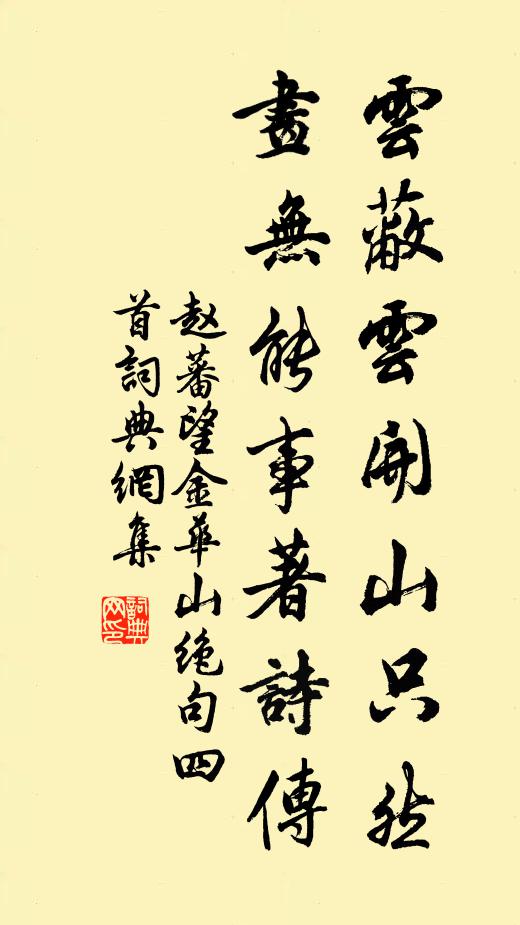 雲蔽雲開山只然
畫無能事著詩傳
赵蕃望金華山絶句四
首詞典網集
詞典
网印